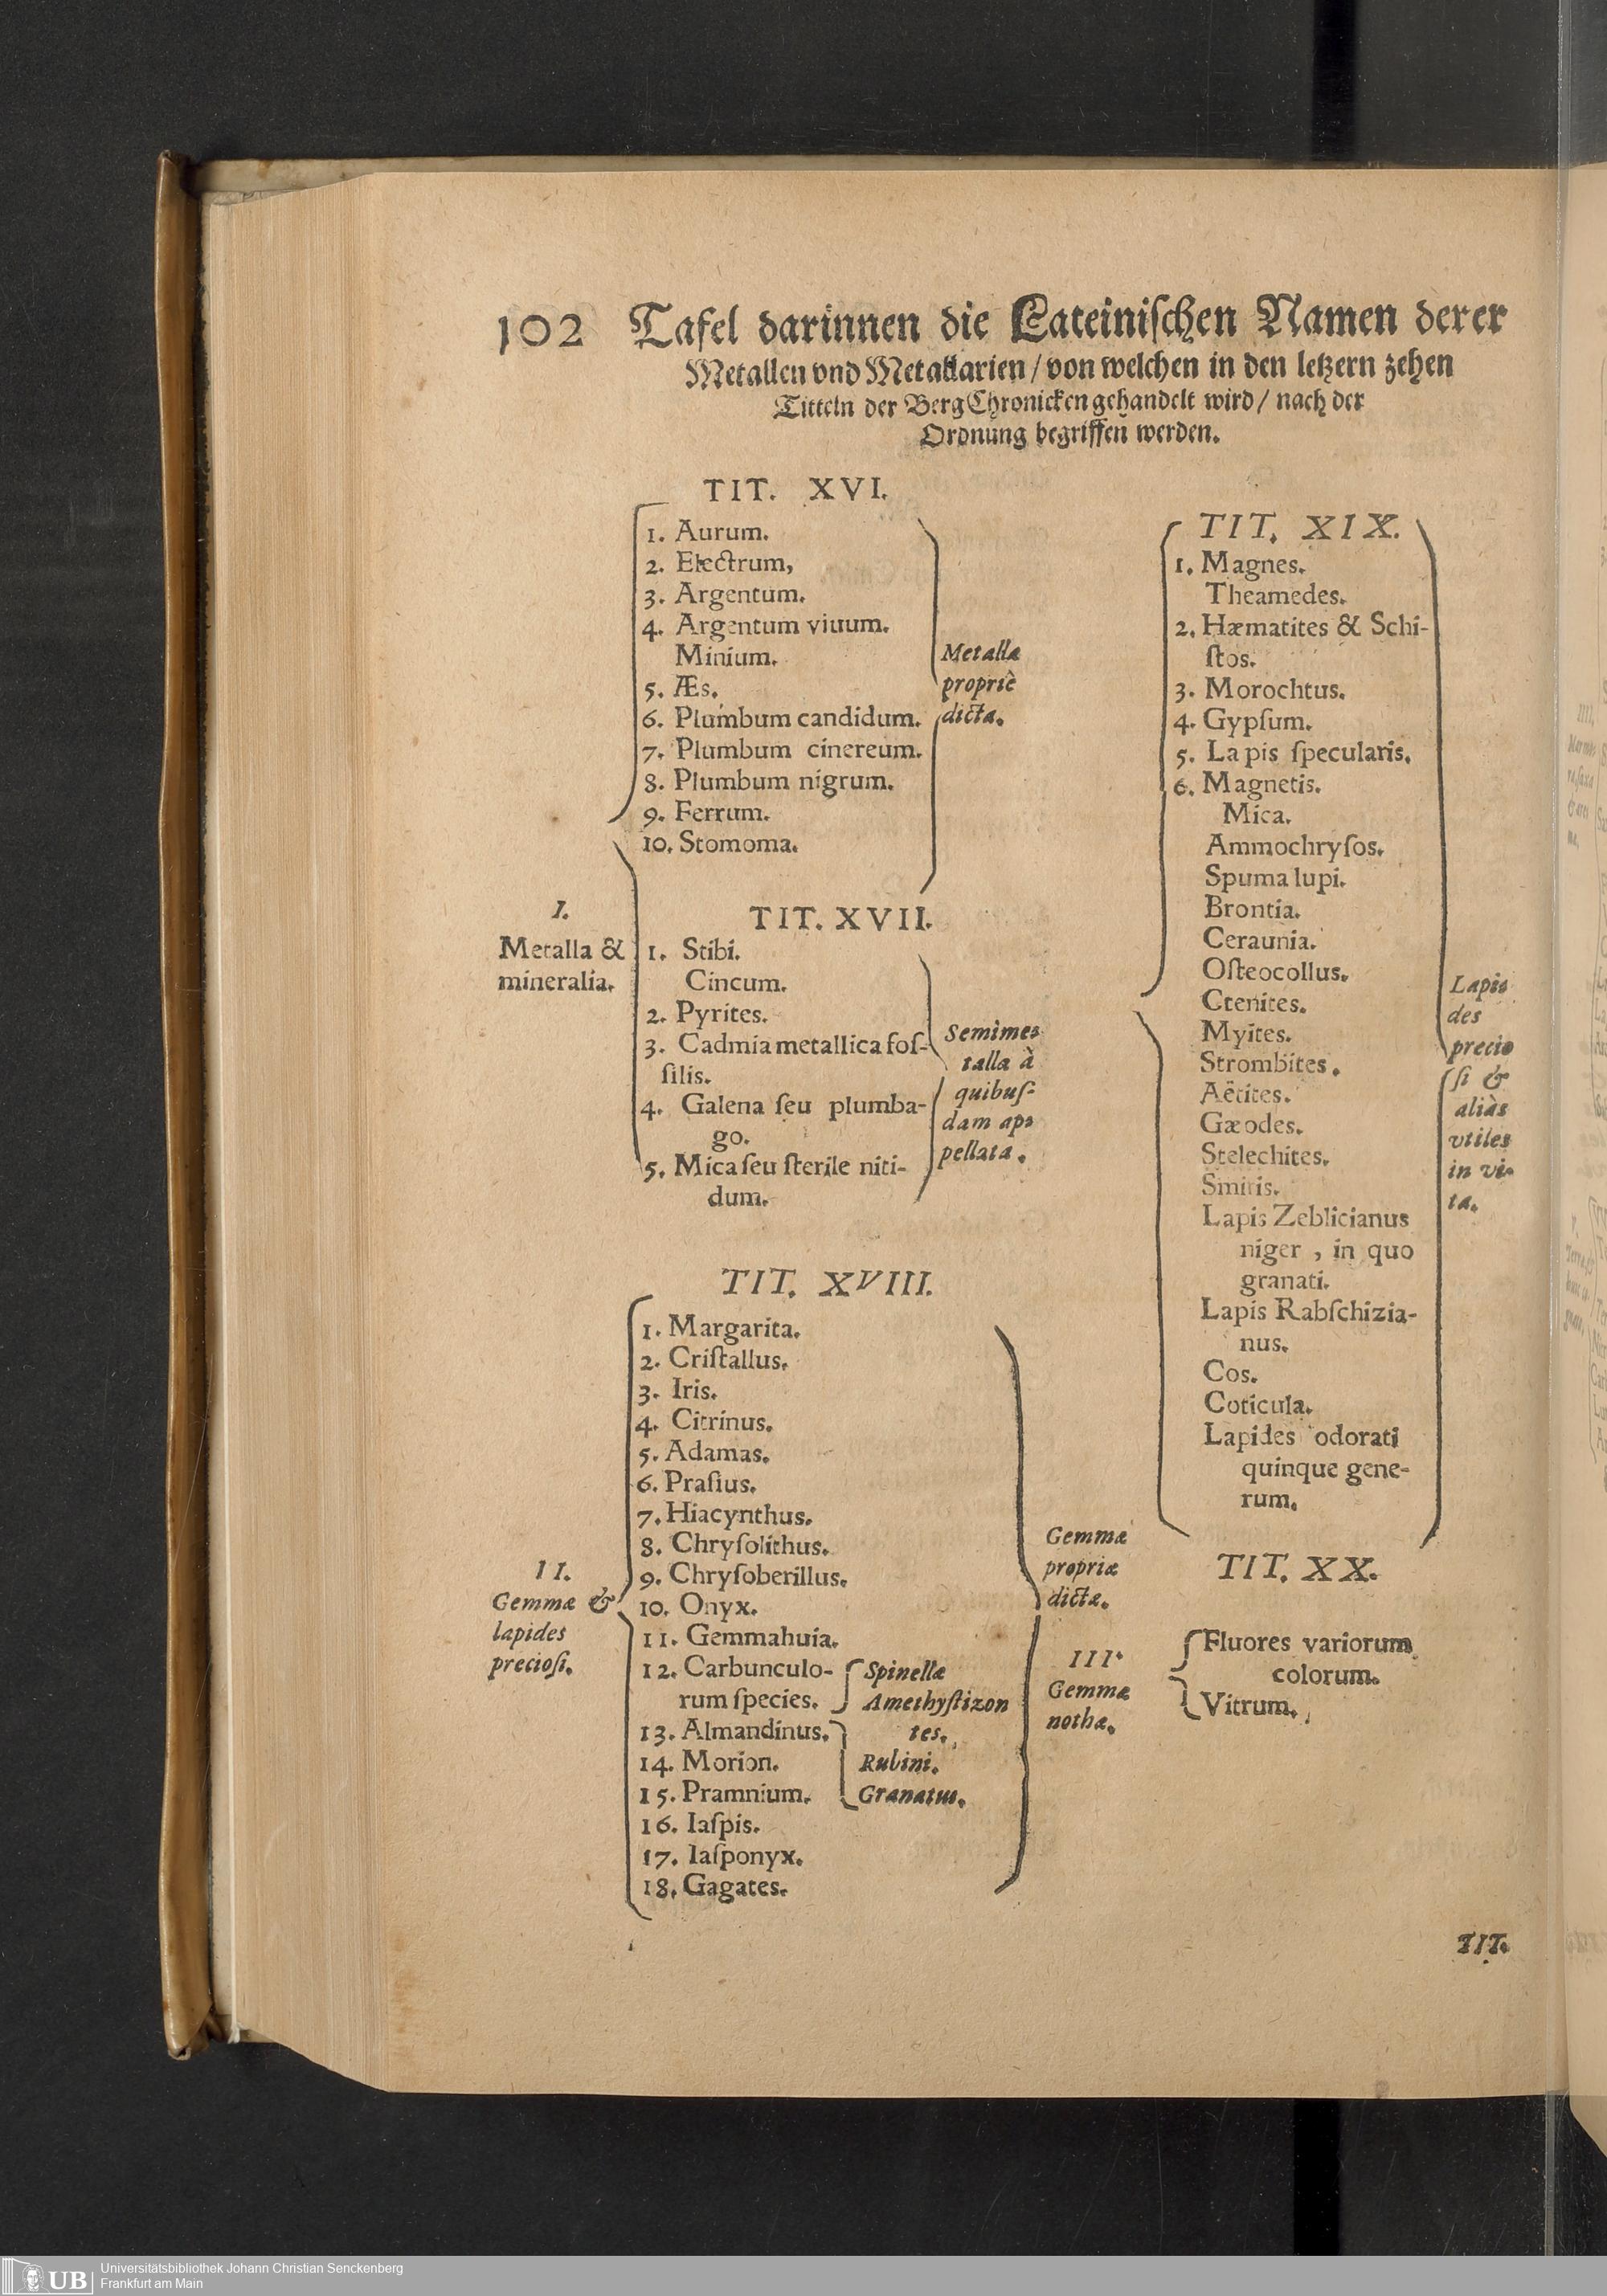 102 Tafel darinnen die Lateiniſchen Namen derer
Metallen vnd Metallarien / von welchen in den letzern zehen
Titteln der BergChronicken gehandelt wird / nach der
Ordnung begriffen werden.
TIT. XVI.
1. Aurum.
2. Electrum,
3. Argentum.
4. Argentum viuum.
Minium.
5. Æs.
6. Plumbum candidum.
7. Plumbum cinereum.
8. Plumbum nigrum.
9. Ferrum.
10. Stomoma.
Metalla
propriè
dicta.
I.
Metalla &
mineralia.
TIT. XVII.
1. Stibi.
Cincum.
2. Pyrites.
3. Cadmia metallica foſ-
ſilis.
4. Galena ſeu plumba-
go.
5. Mica ſeu ſterile niti-
dum.
Semimeꝛ
talla à
quibuſ-
dam apꝛ
pellata.
TIT. XVIII.
1. Margarita.
2. Criſtallus.
3. Iris.
4. Citrinus.
5. Adamas.
6. Praſius.
7. Hiacynthus.
8. Chryſolithus.
9. Chryſoberillus.
10. Onyx.
11. Gemmahuia.
12. Carbunculo-
rum ſpecies.
13. Almandinus.
14. Morion.
15. Pramnium.
16. Iaſpis.
17. Iaſponyx.
18. Gagates.
Spinellæ
Amethyſtizon
tes.
Rubini.
Granatus.
II.
Gemmæ &
lapides
precioſi.
Gemmæ
propriæ
dictæ.
TIT. XIX.
1. Magnes.
Theamedes.
2. Hæmatites & Schi-
ſtos.
3. Morochtus.
4. Gypſum.
5. Lapis ſpecularis.
6. Magnetis.
Mica.
Ammochryſos.
Spuma lupi.
Brontia.
Ceraunia.
Oſteocollus.
Ctenites.
Myites.
Strombites.
Aëtites.
Gæodes.
Stelechites.
Smiris.
Lapis Zeblicianus
niger , in quo
granati.
Lapis Rabſchizia-
nus.
Cos.
Coticula.
Lapides odorati
quinque gene-
rum.
Lapis
des
precio
ſi &
aliàs
vtiles
in vi-
ta.
TIT. XX.
III.
Gemmæ
nothæ.
Fluores variorum
colorum.
Vitrum.
TIT.
UB
Universitätsbibliothek Johann Christian Senckenberg
Frankfurt am Main